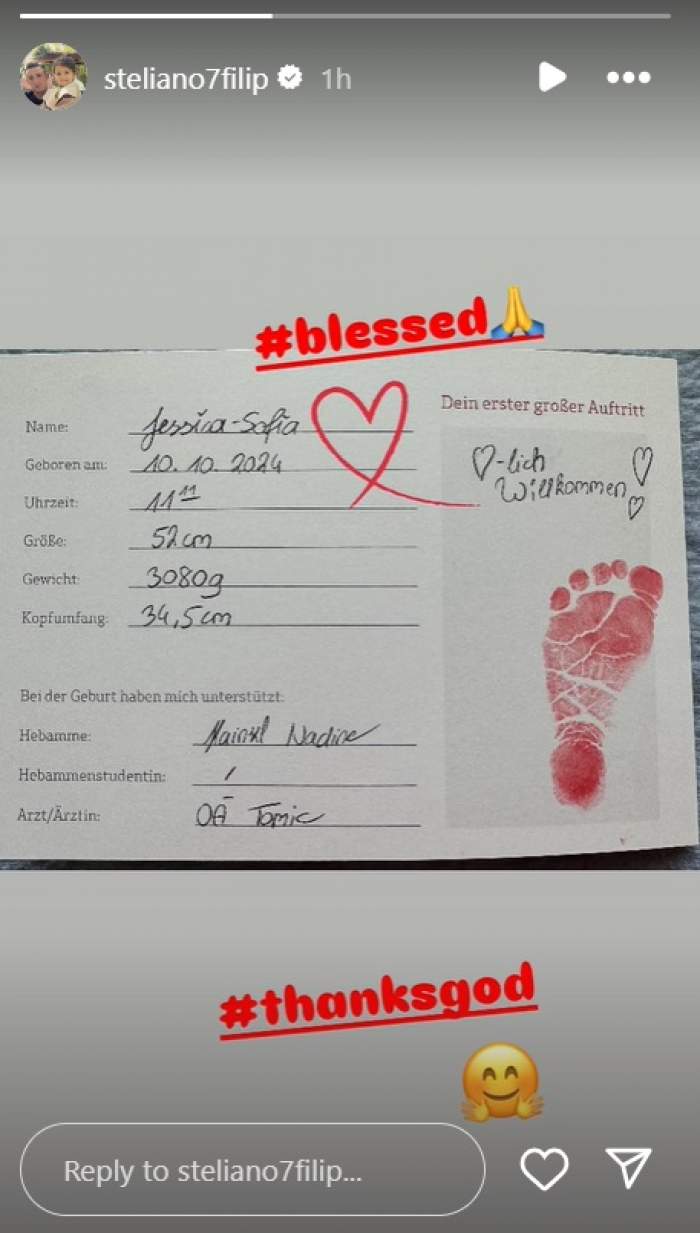 steliano7filip 1h
#blessed🙏
Dein erster großer Auftritt
Name: Jessica-Sofia
♡-lich
Willkommen
Geboren am: 10. 10. 2024
Uhrzeit: 11 11
Größe: 52 cm
Gewicht: 3080g
Kopfumfang: 34,5 cm
Bei der Geburt haben mich unterstützt:
Hebamme: Nadine
Hebammenstudentin: /
Arzt/Ärztin: OÄ Tomic
#thanksgod
🤗
Reply to steliano7filip...